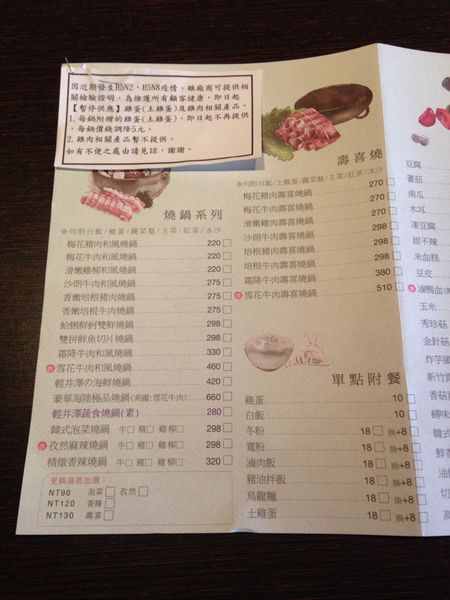 因近期發生H5N2、H5N8疫情,雖廠商可提供相
關檢驗證明,為維護所有顧客健康,即日起
【暫停供應】雞蛋(土雞蛋)及雞肉相關產品。
1.每鍋附贈的雞蛋(土雞蛋),即日起不再提供
,每鍋價錢調降5元。
2.雞肉相關產品暫不提供。
如有不便之處由請見諒,謝謝。
燒鍋系列
※均附白飯/雞蛋/蔬菜盤/主菜/紅茶/冰沙
梅花豬肉和風燒鍋 220
梅花牛肉和風燒鍋 220
滑嫩雞柳和風燒鍋 220
沙朗牛肉和風燒鍋 275
香嫩培根豬肉燒鍋 275
香嫩培根牛肉燒鍋 275
蛤蜊鮮蚵雙鮮燒鍋 298
雙拼鮮魚切片燒鍋 298
霜降牛肉和風燒鍋 330
雪花牛肉和風燒鍋 460
輕井澤の海鮮燒鍋 420
豪華海陸極品燒鍋(美國:雪花牛肉) 660
輕井澤蔬食燒鍋(素) 280
韓式泡菜燒鍋 牛 豬 雞柳 298
孜然麻辣燒鍋 牛 豬 雞柳 298
精燉香辣燒鍋 牛 豬 雞柳 320
更換湯底加價
NT90 泡菜 孜然
NT120 香辣
NT130 壽喜
壽喜燒
※均附白飯/土雞蛋/蔬菜盤/主菜/紅茶/冰沙
梅花豬肉壽喜燒鍋 270
梅花牛肉壽喜燒鍋 270
滑嫩雞柳壽喜燒鍋 270
沙朗牛肉壽喜燒鍋 298
培根豬肉壽喜燒鍋 298
培根牛肉壽喜燒鍋 298
霜降牛肉壽喜燒鍋 380
雪花牛肉壽喜燒鍋 510
單點附餐
雞蛋 10
白飯 10
冬粉 18 換+8
寬粉 18 換+8
滷肉飯 18 換+8
豬油拌飯 18 換+8
烏龍麵 18 換+8
土雞蛋 18 換+8
豆腐
蕃茄
南瓜
木耳
凍豆腐
甜不辣
米血糕
豆皮
滷鴨血(
玉米
秀珍菇
金針菇
炸芋頭
新竹
香菇